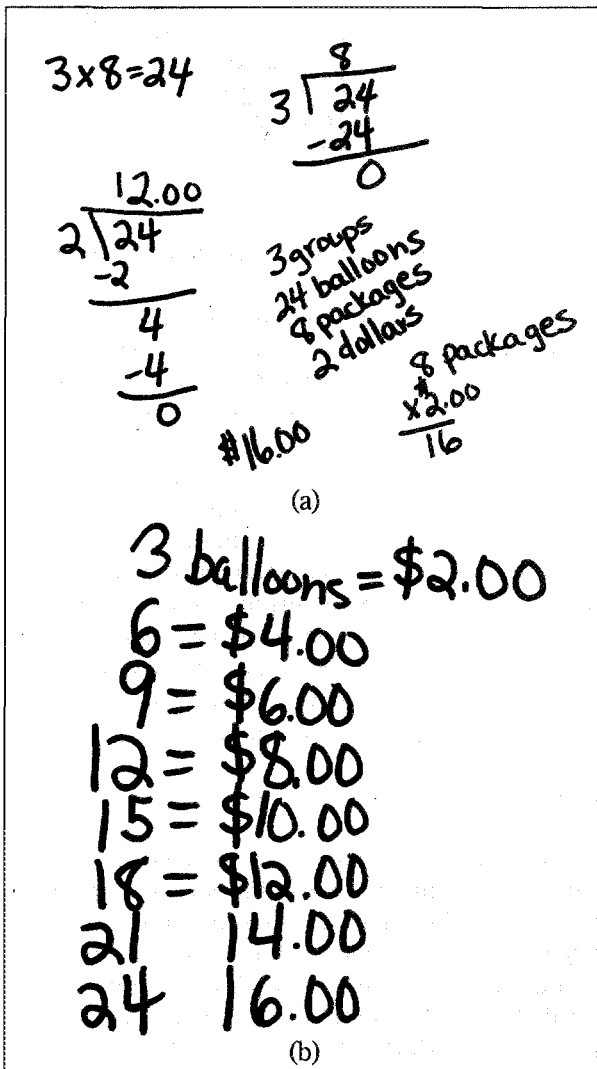 3x8=24
8
3 24
-24
0
12.00
2 24
-2
4
-4
0
3 groups
24 balloons
8 packages
2 dollars
8 packages
x $2.00
16
$16.00
(a)
3 balloons = $2.00
6 = $4.00
9 = $6.00
12 = $8.00
15 = $10.00
18 = $12.00
21 14.00
24 16.00
(b)